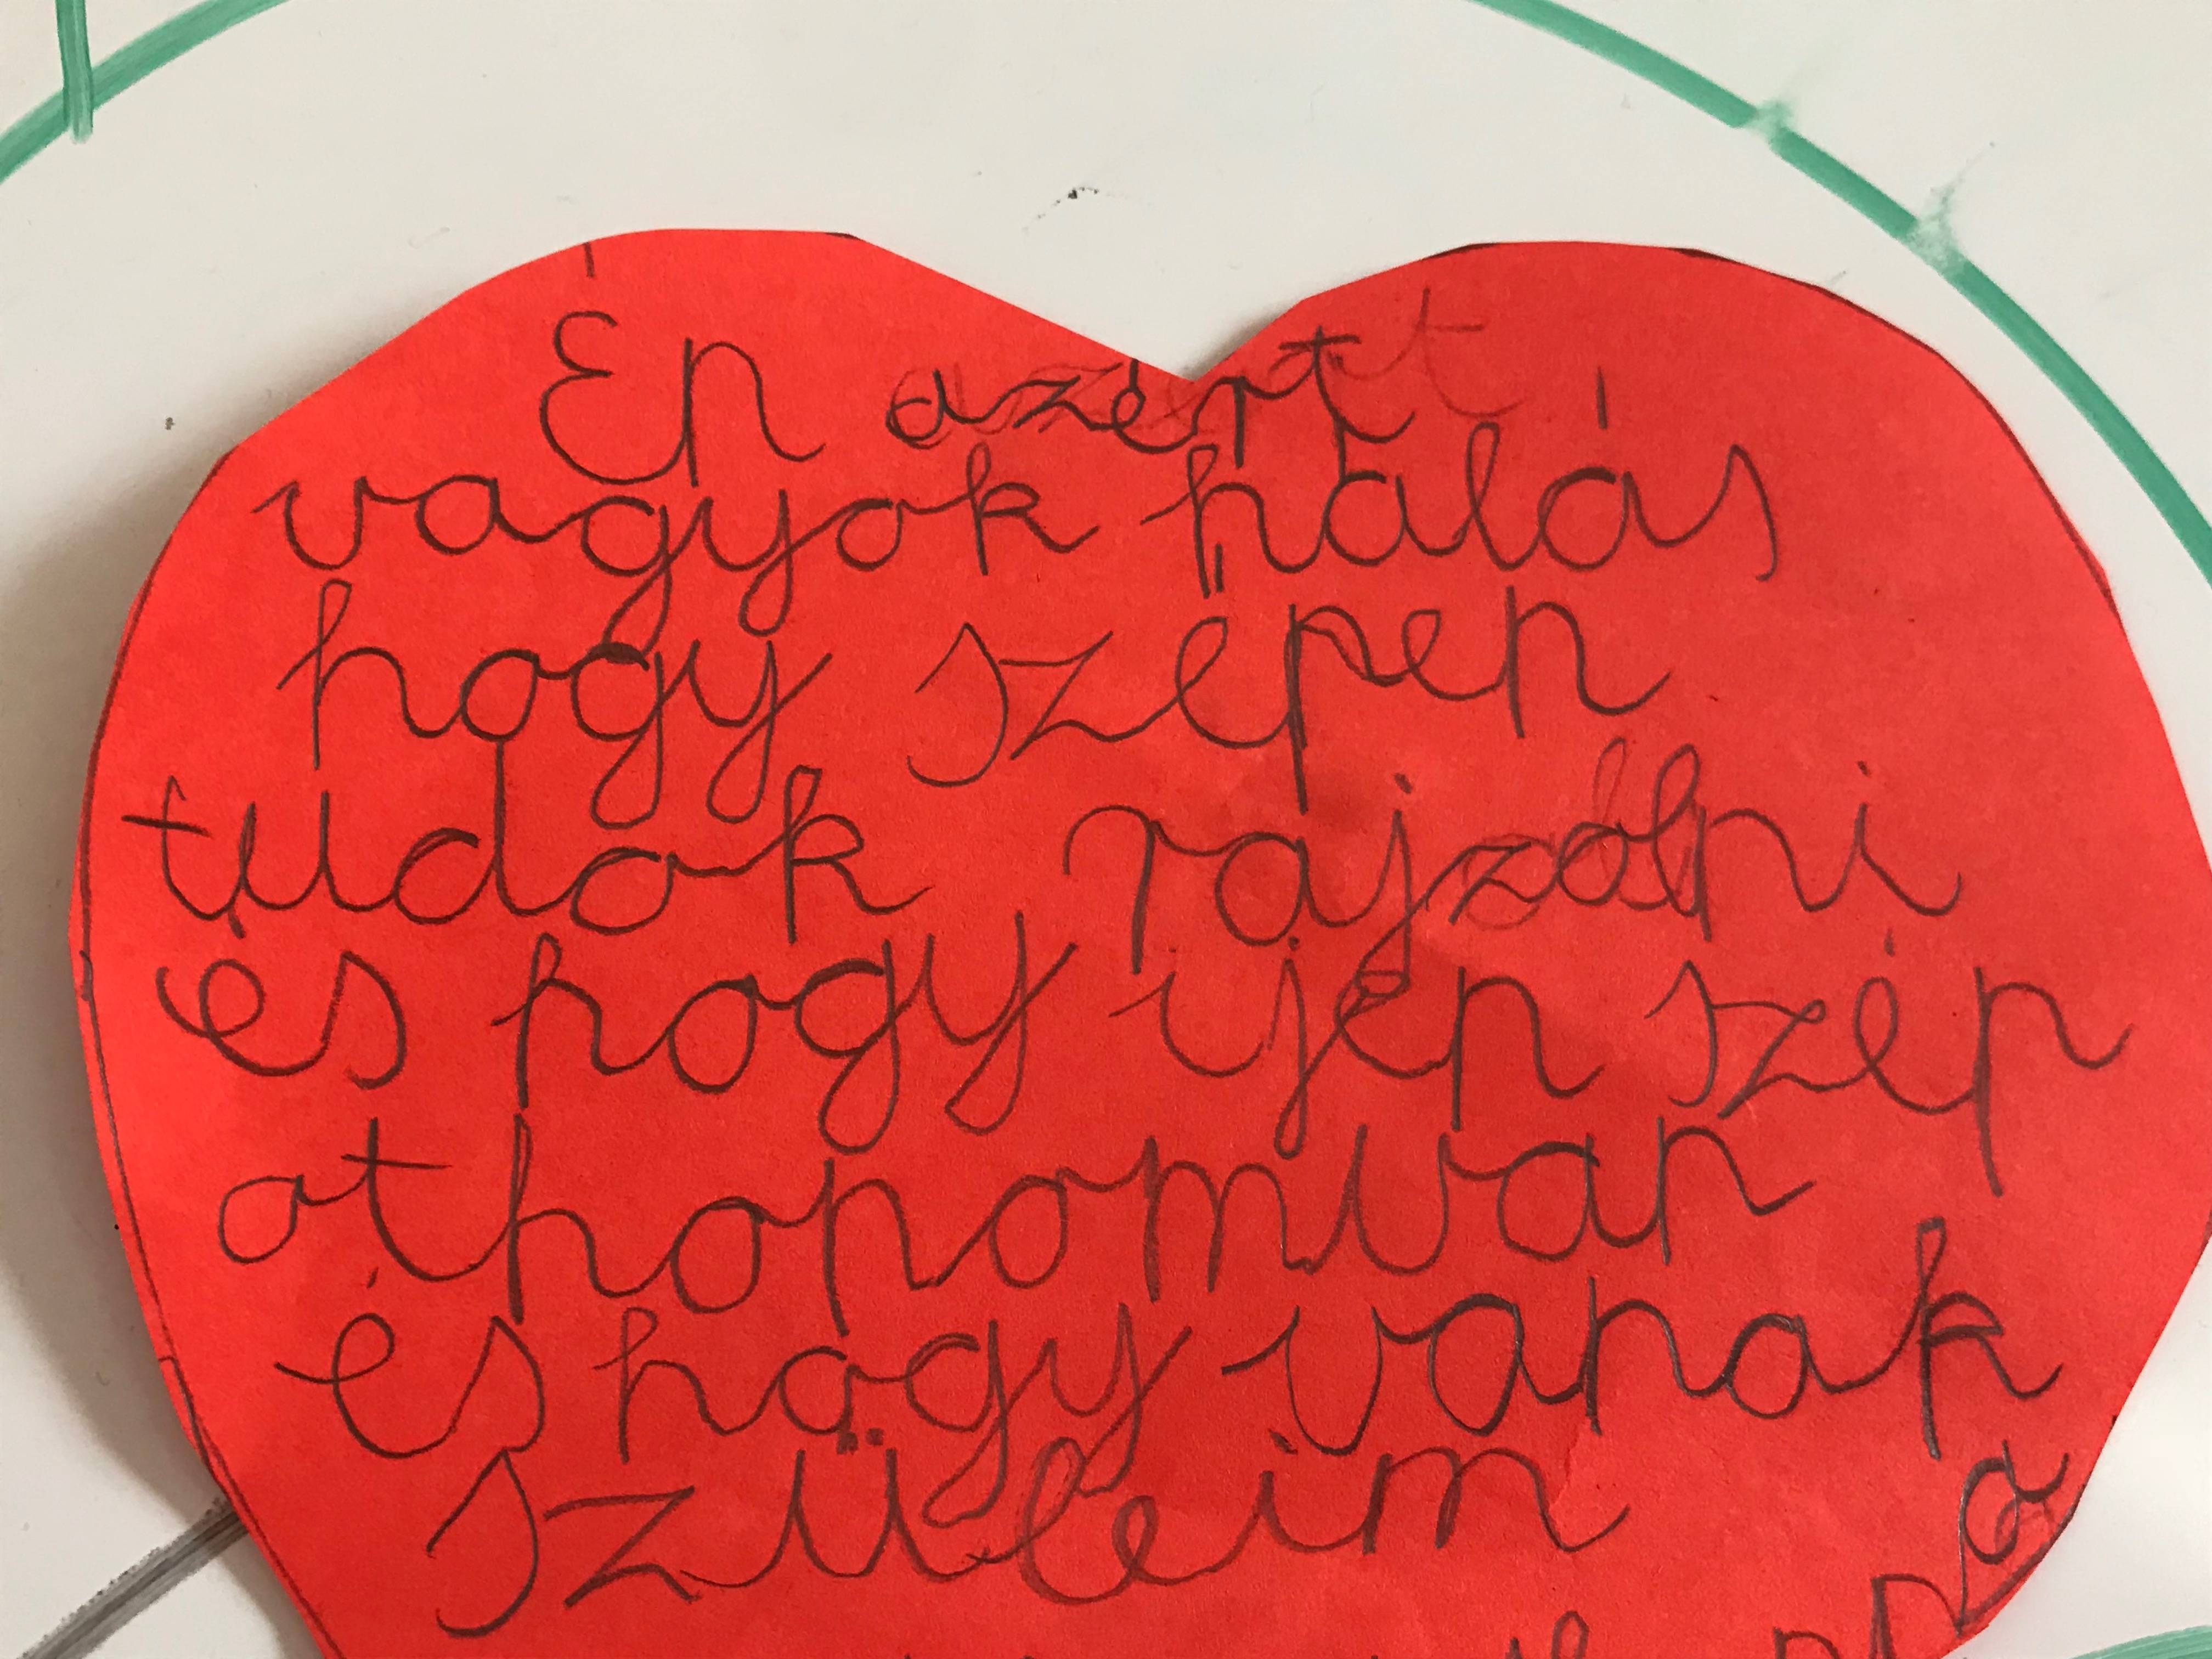 Én azért
vagyok hálás
hogy szépen
tudok rajzolni
és hogy ijen szép
othonomvan
és hogy vanak
szüleim